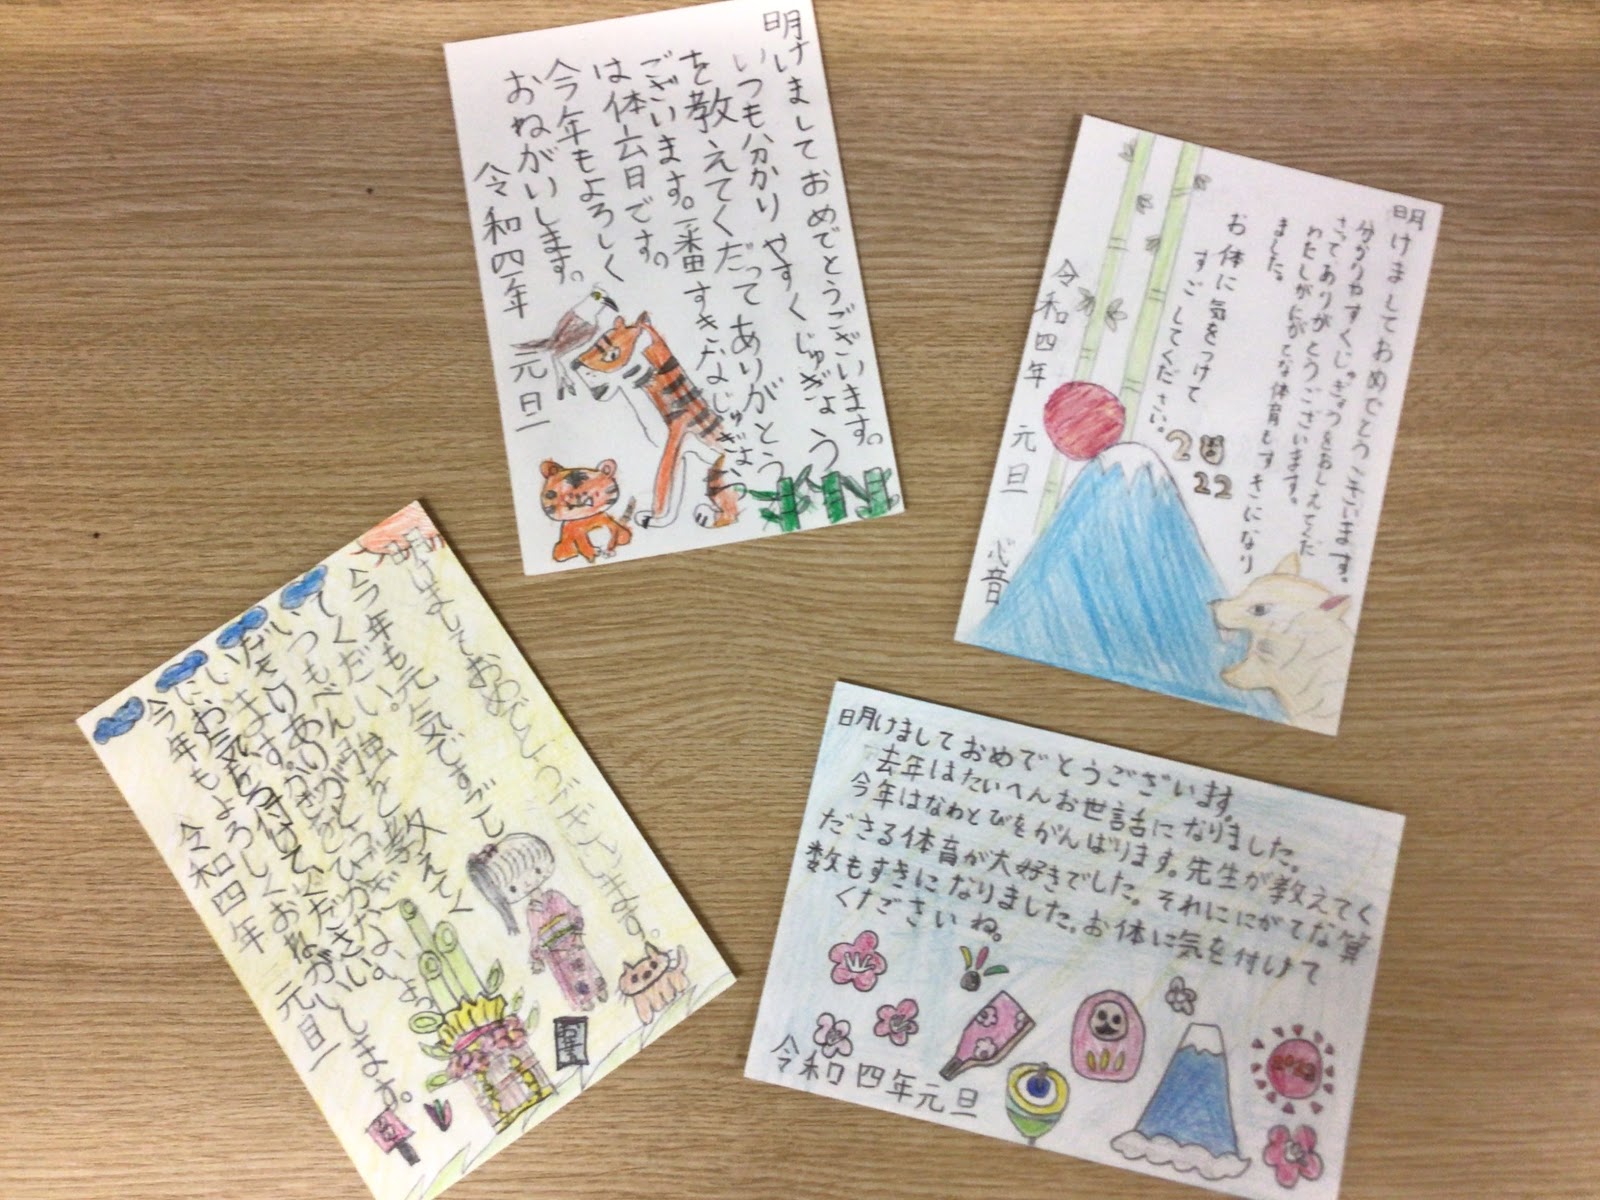 明けましておめでとうございます。
いつも分かりやすくじゅぎょう
を教えてくだってありがとう
ございます。一番すきなじゅぎょう
は体育です。
今年もよろしく
おねがいします。
令和四年 元旦
明けましておめでとうございます。
分かりやすくじゅぎょうをおしえてくだ
さってありがとうございます。
わたしがにがてな体育もすきになり
ました。
お体に気をつけて
すごしてください。
令和四年 元旦
2022
心音
明けましておめでとうございます。
今年も元気ですごし
てください。
いつもべん強を教えてく
だきありがとうございます。
お気を付けてください
今年もよろしくおねがいします。
令和四年 元旦
明けましておめでとうございます。
去年はたいへんお世話になりました。
今年はなわとびをがんばります。先生が教えてく
ださる体育が大好きでした。それににがてな算
数もすきになりました。お体に気を付けて
くださいね。
令和四年元旦
2022